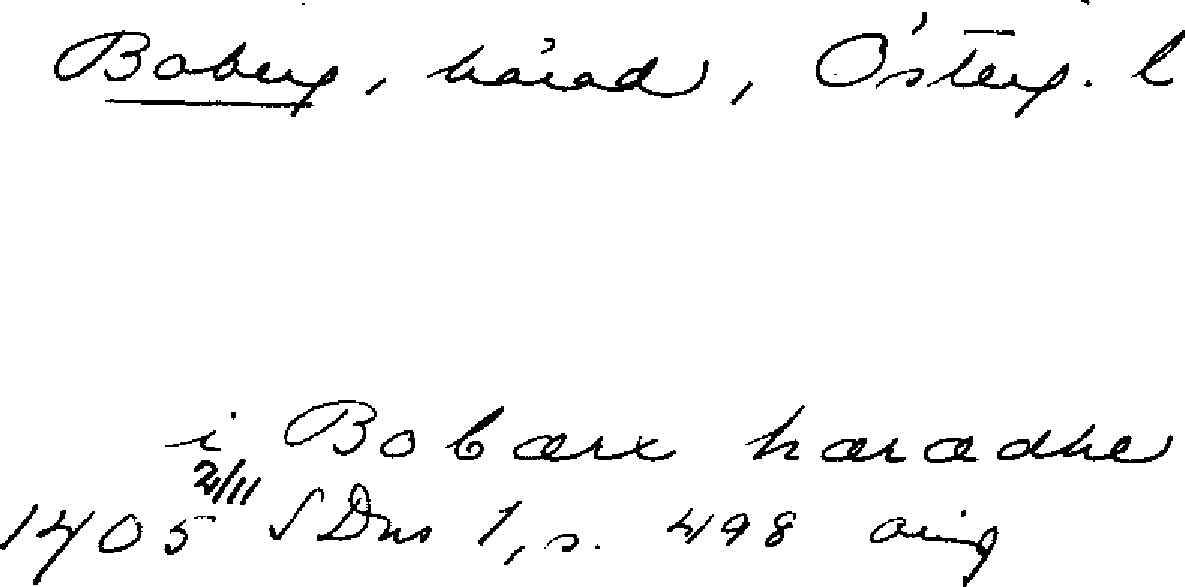 Boberg, härad, Österg. l
i Bobærx hæradhe
1405 2/11 SDns 1, s. 498 orig